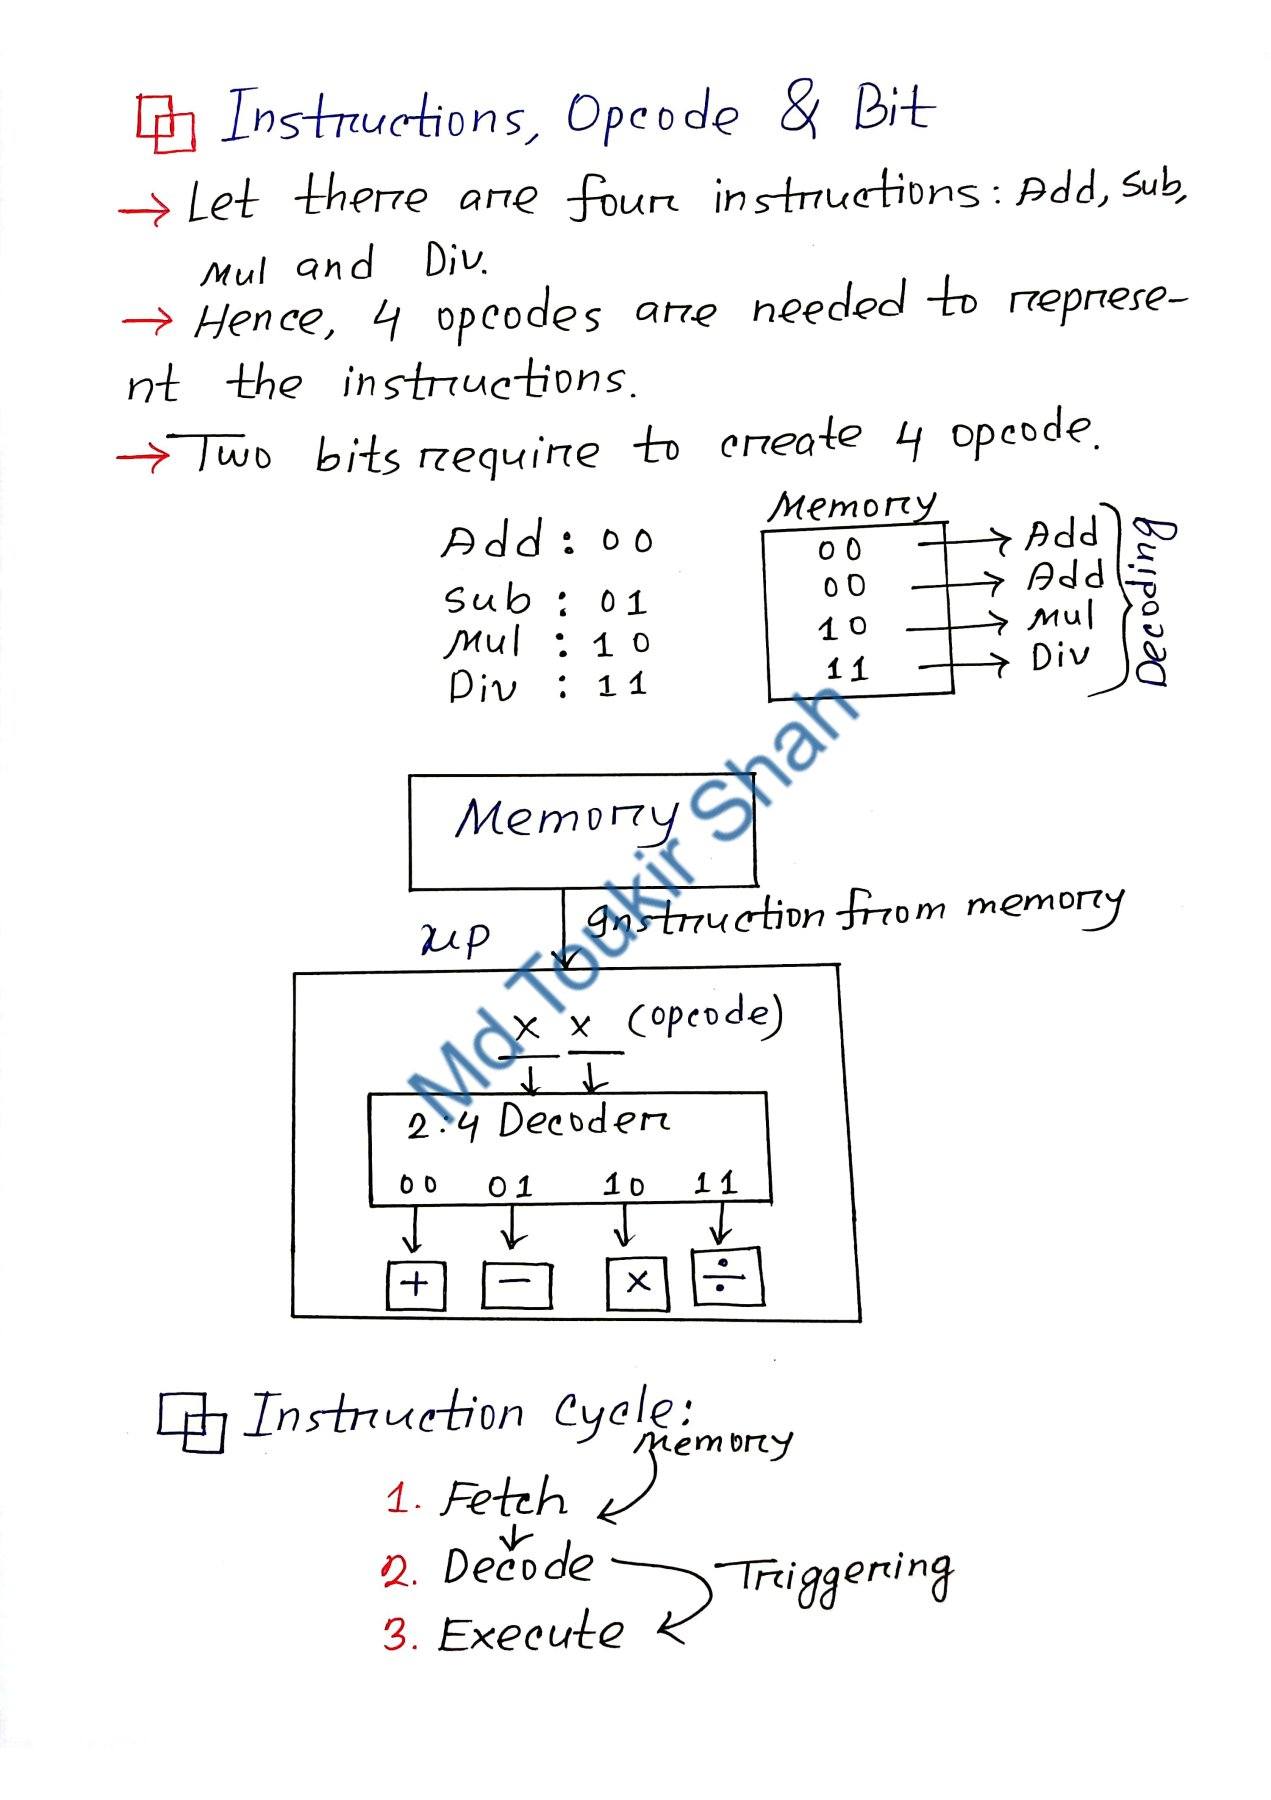 Instructions, Opcode & Bit
→ Let there are four instructions: Add, Sub,
Mul and Div.
→ Hence, 4 opcodes are needed to represe-
nt the instructions.
→ Two bits require to create 4 opcode.
Add : 00
Sub : 01
Mul : 10
Div : 11
Memory
00 → Add
00 → Add
10 → Mul
11 → Div
Decoding
Memory
Instruction from memory
μp
x x (opcode)
2:4 Decoder
00 01 10 11
+ − × ÷
Md Toukir Shah
Instruction Cycle:
Memory
1. Fetch
2. Decode
Triggering
3. Execute